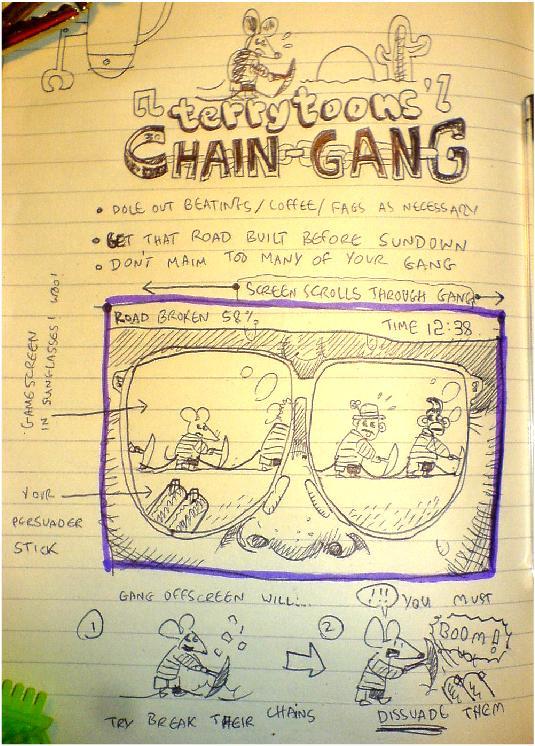 terrytoons'
CHAIN GANG
• DOLE OUT BEATINGS/COFFEE/FAGS AS NECESSARY
• GET THAT ROAD BUILT BEFORE SUNDOWN
• DON'T MAIM TOO MANY OF YOUR GANG
SCREEN SCROLLS THROUGH GANG
ROAD BROKEN 58%
TIME 12:38
GAMESCREEN
IN SUNGLASSES! WOO!
YOUR
PERSUADER
STICK
GANG OFFSCREEN WILL...
1
TRY BREAK THEIR CHAINS
2
!!!
YOU MUST
BOOM!
DISSUADE THEM